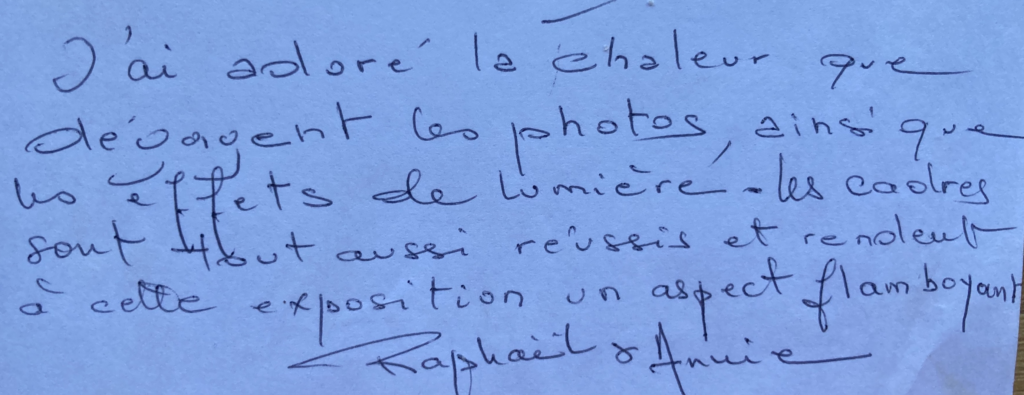 J'ai adoré la chaleur que
dégagent les photos, ainsi que
les effets de lumière. les cadres
sont tout aussi réussis et rendent
à cette exposition un aspect flamboyant
Raphaël & Annie